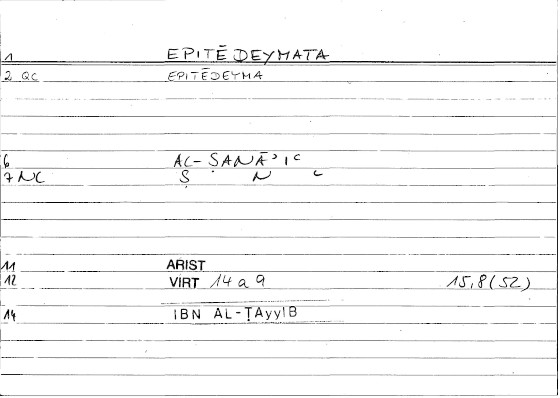 1 EPITĒDEYMATA
2 QC EPITĒDEYMA
6 AL-ṢANĀʾIʿ
7 NC Ṣ N ʿ
11 ARIST
12 VIRT 14 a 9 15,8 (52)
14 IBN AL-ṬAyyIB